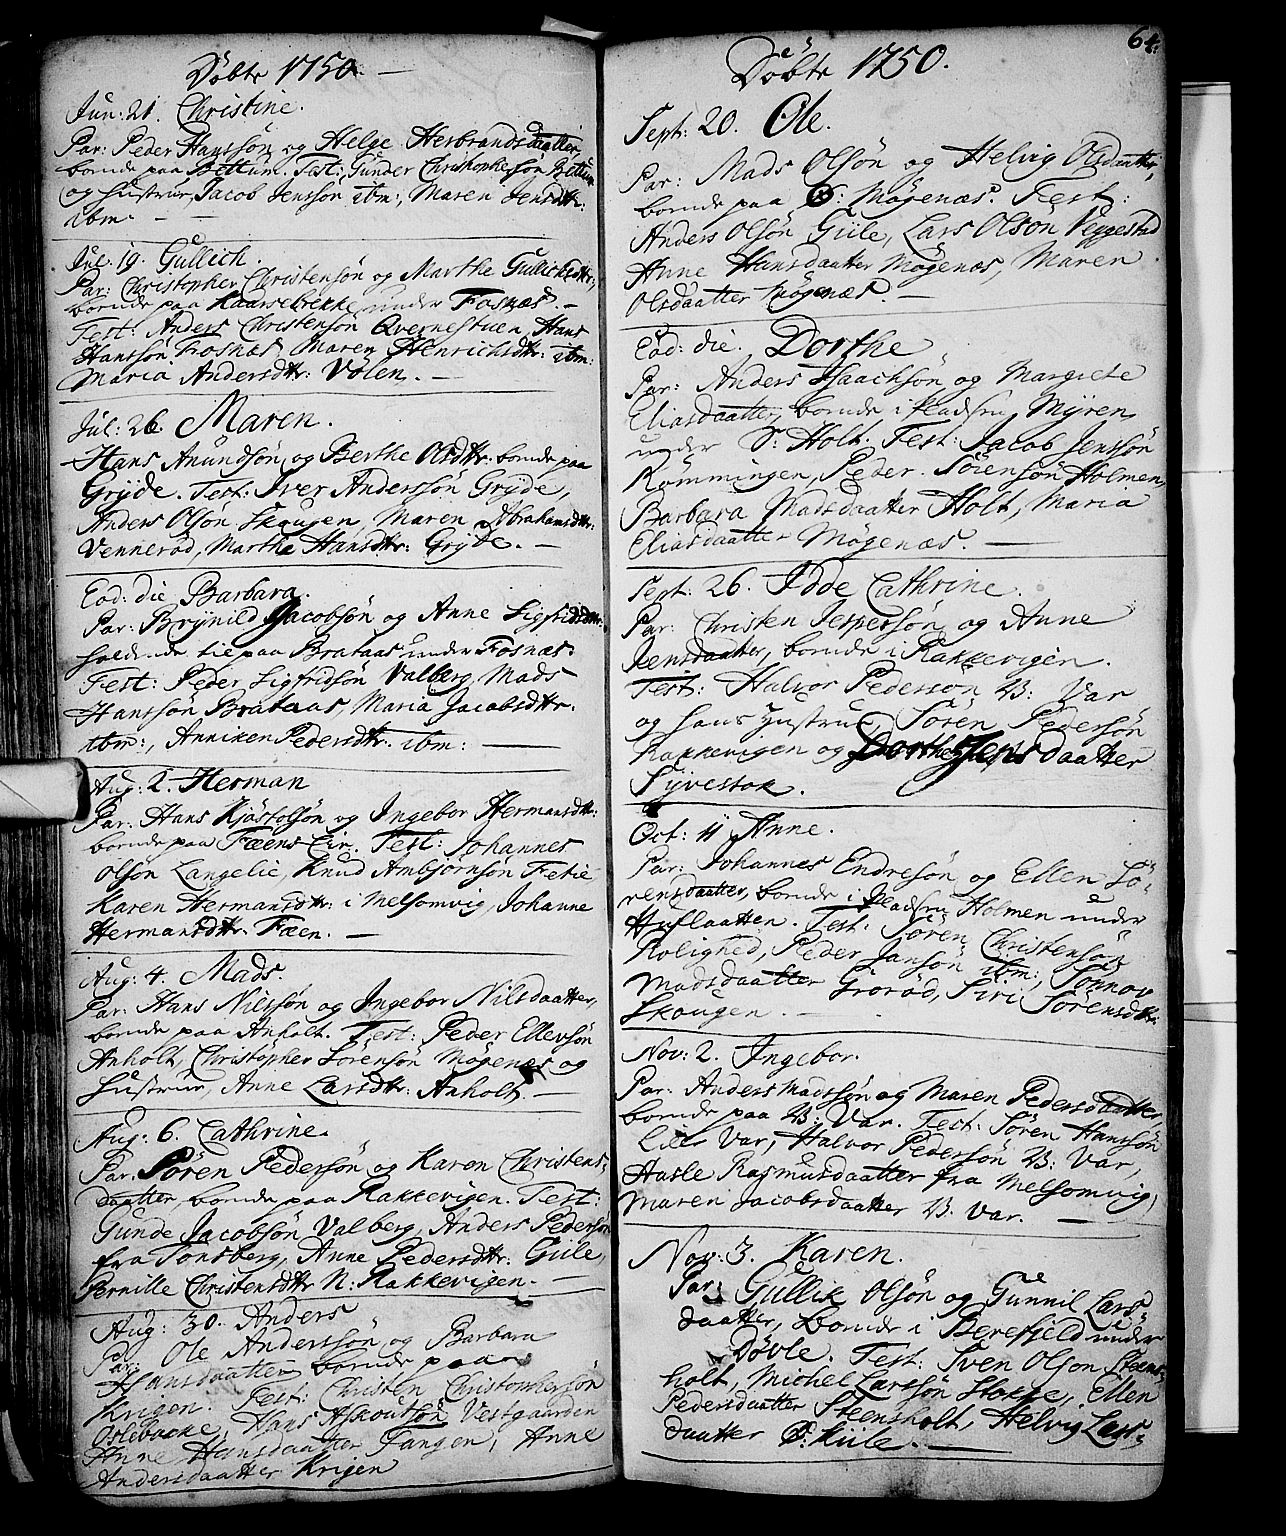 Döbte 1750. —
Jun: 21. Christine.
Par: Peder Hanssön og Helge Herbrandsdaatter,
boende paa Bettum. Test: Gunder Christophersön Bettum
og Hustrue, Jacob Jenssön ibm:, Maren Jensdttr:
ibm. — —
Jul: 19. Gullich.
Par: Christopher Christensön og Marthe Gullichsdttr:,
boende paa Kaarsebekke under Fosnæs. —
Test: Anders Christensön Qvernestuen, Hans
Hanssön Fosnæs, Maren Henrichsdttr: ibm:
Maria Andersdttr: Volen. —
Jul: 26. Maren.
Hans Anundsön og Berthe Olsdttr: boende paa
Gryde. Test: Iver Anderssön Gryde,
Anders Olsön Skougen, Maren Abrahamsdttr:
Venneröd, Marthe Hansdttr: Gryde. —
Eod: die Barbara.
Par: Brynild Jacobsön og Anne Sigfridsdttr:
holdende til paa Brataas under Fosnæs.
Test: Peder Sigfridsön Valberg, Mads
Hanssön Brataas, Maria Jacobsdttr.
ibm:, Anniken Pedersdttr. ibm: —
Aug: 2. Herman
Par. Hans Kjöstolsön og Ingebor Hermansdttr:
boende paa Fæens Eie. Test: Johannes
Olsön Langelie, Knud Ambjörnsön Fetie
Karen Hermansdttr: i Melsomvig, Johanne
Hermansdttr. Fæen. —
Aug: 4. Mads.
Par. Hans Nilssön og Ingebor Nilsdaatter,
boende paa Anholt. Test: Peder Ellevsön
Anholt, Christopher Sörensön Mögenæs og
Hustrue, Anne Larsdttr: Anholt. —
Aug: 6. Cathrine.
Par. Sören Pedersön og Karen Christens-
daatter, boende paa Rakkevigen. Test:
Gunde Jacobsön Valberg, Anders Pedersön
fra Tonsberg, Anne Pedersdttr: Giile,
Pernille Christensdttr N: Rakkevigen. —
Aug: 30. Anders
Par: Ole Anderssön og Barbara
Hansdaatter boende paa
Krigen. Test: Christen Christophersön
Oslebacke, Hans Askoutsön Vestgaarden
Anne Hansdaatter Tangen, Anne
Andersdaatter Krigen
64.
Döbte 1750.
Sept: 20. Ole.
Par: Mads Olsön og Helvig Olsdaatter,
boende paa Ö: Mögenæs. Test:
Anders Olsön Giile, Lars Olsön Veggestad
Anne Hansdaatter Mögenæs, Maren
Olsdaatter Mögenæs. —
Eod: die. Dorthe
Par: Anders Isaachsön og Margrete
Eliasdaatter, boende i Pladsen Myren
under S: Holt. Test: Jacob Jenssön
Römmingen, Peder Sörensön Holmen,
Barbara Madsdaatter Holt, Maria
Eliasdaatter Mögenæs. —
Sept: 26. Idde Cathrine.
Par: Christen Jespersön og Anne
Jensdaatter, boende i Rakkevigen.
Test: Halvor Pederssön V: Var
og hans Hustrue, Sören Pedersön
Rakkevigen og Dorthe Jensdaatter
Syvestok.
Oct: 11 Anne.
Par: Johannes Endresön og Ellen Sö-
rensdaatter, boende i Pladsen Holmen under
Huflaatten. Test: Sören Christensön
Rolighed, Peder Jansön ibm:, Sönnov
Madsdaatter Groröd, Siri Sörensdttr:
Skougen. —
Nov: 2. Ingebor.
Par: Anders Madssön og Maren Pedersdaatter,
boende paa V: Var. Test: Sören Hanssön
Lill Var, Halvor Pedersön V: Var,
Aasle Rasmusdaatter fra Melsomvig,
Maren Jacobsdaatter V. Var. —
Nov: 3. Karen.
Par: Gullik Olsön og Gunnil Lars-
daatter, boende i Berefjeld under
Dövle. Test: Sven Olsön Steens-
holt, Michel Larssön Stokke, Ellen
Pedersdaatter Steensholt, Helvig Lars-
daatter Ö: Kiile. —